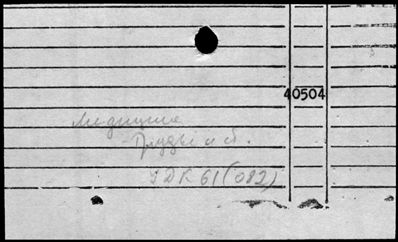 40504
Медицина
Труды и сб.
УДК 61(082)